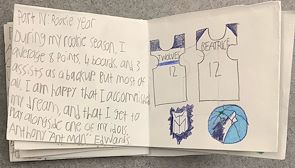 Part IV: Rookie Year
During my rookie season, I
average 8 points, 4 boards, and 3
assists as a backup. But most of
all, I am happy that I accomplish
my dream, and that I get to
play alongside one of my idols:
Anthony "Ant man" Edwards.
TWOLVES
12
BEATRICE
12